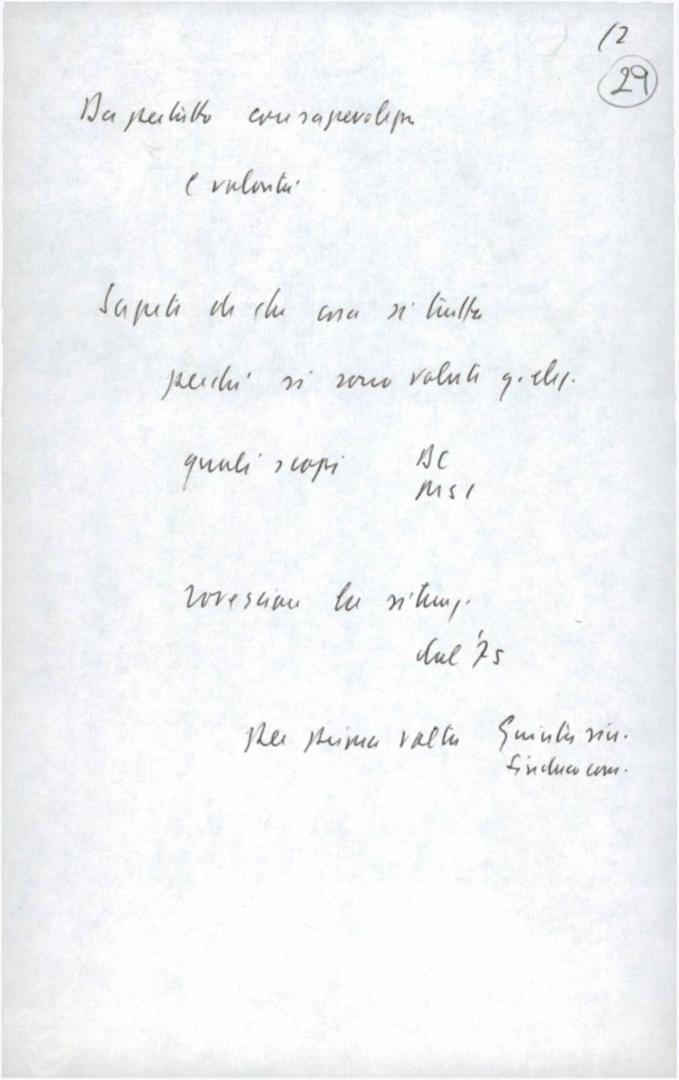 12
29
Da pertutto consapevolezza
e volontà
Sapete di che cosa si tratta
perché si sono volute q. elez.
quali scopi DC
MSI
rovesciare la situaz.
dal '75
per prima volta Giunta sin.
Sindaco com.